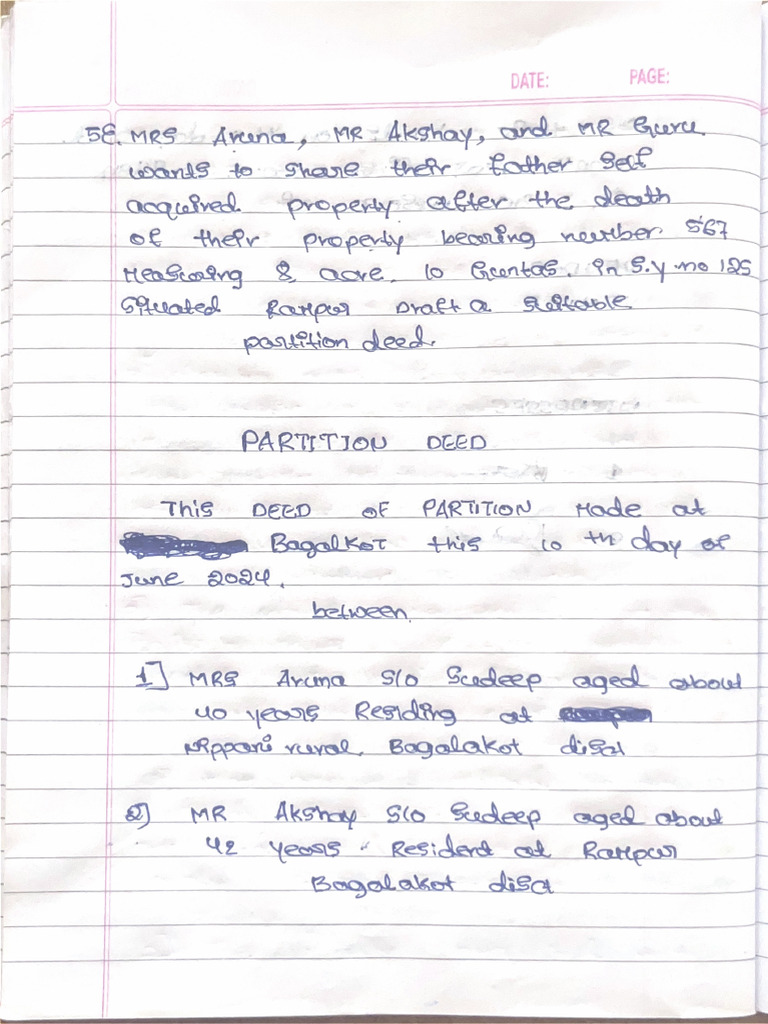 DATE: PAGE:
58. MRS Aruna, MR Akshay, and MR Guru
wants to share their father self
acquired property after the death
of their property bearing number 567
Measuring & acre, 10 Guntas, in S.y no 125
Situated Rampur Draft a suitable
partition deed.
PARTITION DEED
This DEED OF PARTITION Made at
Bagalkot this 10 th day of
June 2024.
between
1] MRS Aruna S/o Sudeep aged about
40 years Residing at
Nippani rural, Bagalakot dist
2] MR Akshay S/o Sudeep aged about
42 years Resident at Rampur
Bagalakot dist